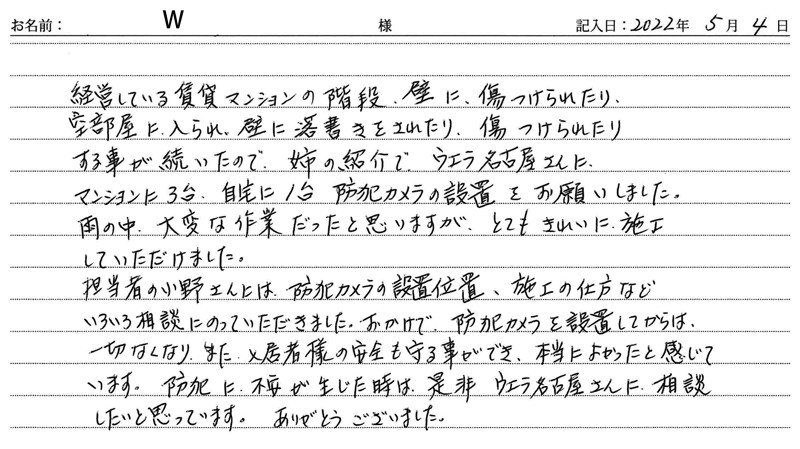 お名前： W 様 記入日：2022年 5月 4日
経営している賃貸マンションの階段、壁に、傷つけられたり、
空部屋に入られ、壁に落書きをされたり、傷つけられたり
する事が続いたので、姉の紹介で、ウエラ名古屋さんに、
マンションに3台、自宅に1台 防犯カメラの設置をお願いしました。
雨の中、大変な作業だったと思いますが、とてもきれいに施工
していただけました。
担当者の小野さんには、防犯カメラの設置位置、施工の仕方など
いろいろ相談にのっていただきました。おかげで、防犯カメラを設置してからは、
一切なくなり、また、入居者様の安全も守る事ができ、本当によかったと感じて
います。防犯に、不安が生じた時は、是非 ウエラ名古屋さんに、相談
したいと思っています。 ありがとうございました。